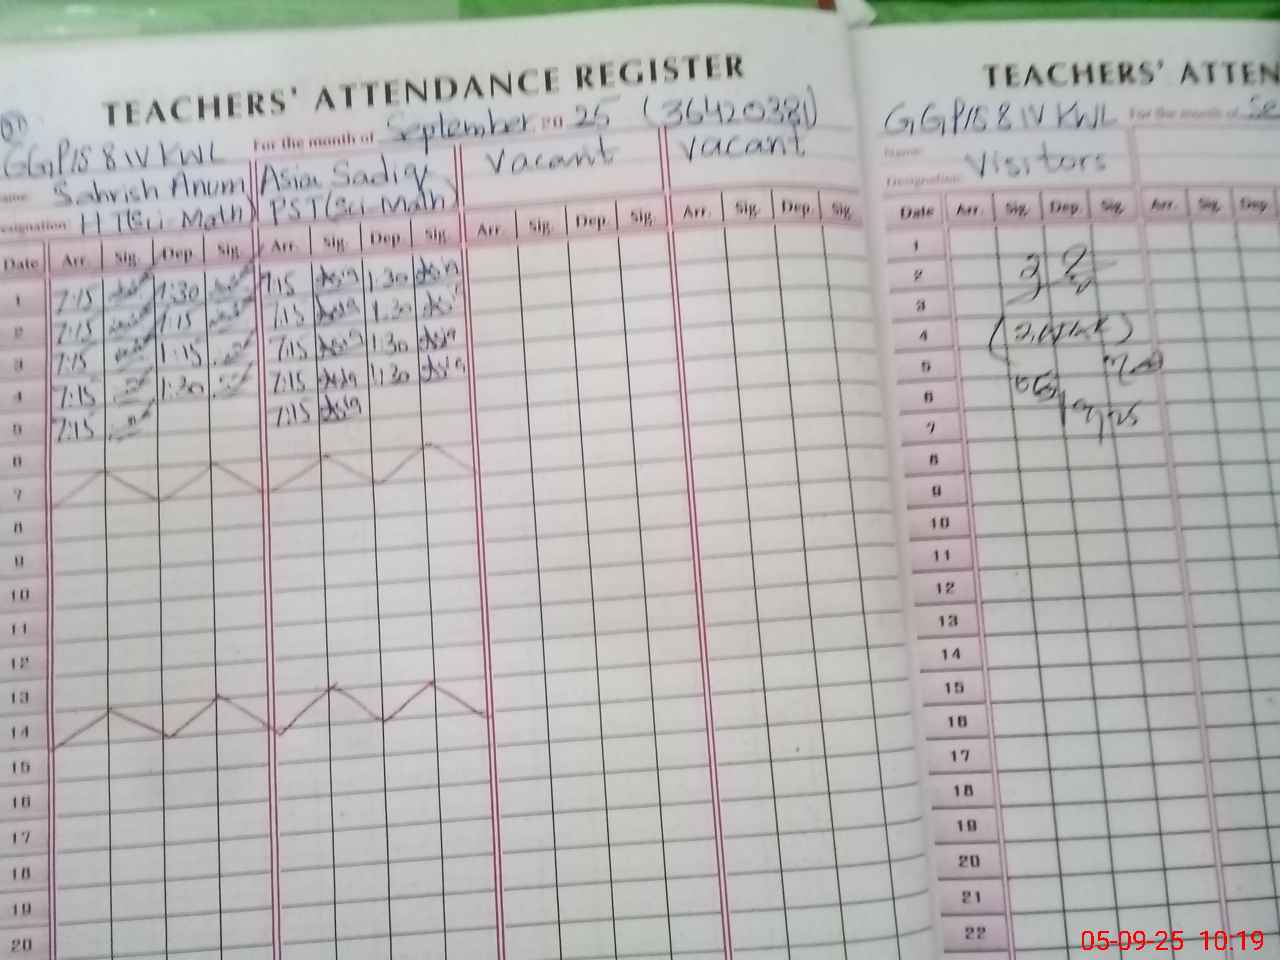 TEACHERS' ATTENDANCE REGISTER
GGPIS 8 IV KWL For the month of September 20 25 (36420381)
Name Sahrish Anum Asia Sadiq Vacant Vacant
Designation H T(Sci Math) PST(Sci Math)
Date Arr. Sig. Dep. Sig. Arr. Sig. Dep. Sig. Arr. Sig. Dep. Sig. Arr. Sig. Dep. Sig.
1 7:15 1:30 7:15 Asia 1:30 Asia
2 7:15 1:15 7:15 Asia 1:30 Asia
3 7:15 1:15 7:15 Asia 1:30 Asia
4 7:15 1:30 7:15 Asia 1:30 Asia
5 7:15 7:15 Asia
6
7
8
9
10
11
12
13
14
15
16
17
18
19
20
TEACHERS' ATTEN
GGPIS 8 IV KWL For the month of Se
Name: Visitors
Designation:
Date Arr. Sig. Dep. Sig. Arr. Sig. Dep.
1
2
3
4
5
6
7
8
9
10
11
12
13
14
15
16
17
18
19
20
21
22
05-09-25 10:19